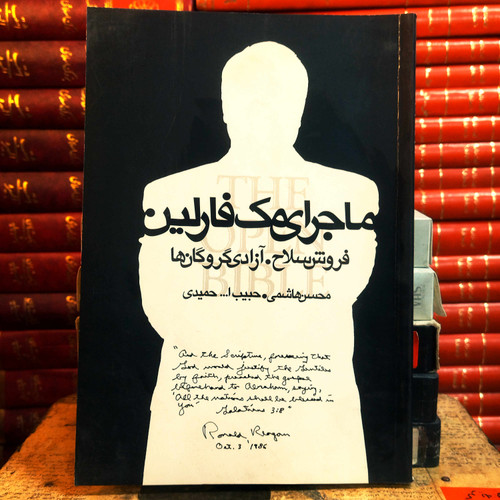 THE
OPEN
BIBLE
ماجرای مک فارلین
فروش سلاح • آزادی گروگان‌ها
محسن هاشمی • حبیب ا... حمیدی
"And the Scripture, foreseeing that
God would justify the Gentiles
by faith, preached the gospel
beforehand to Abraham, saying,
'All the nations shall be blessed in
you'" Galatians 3:8
Ronald Reagan
Oct. 3 '1986